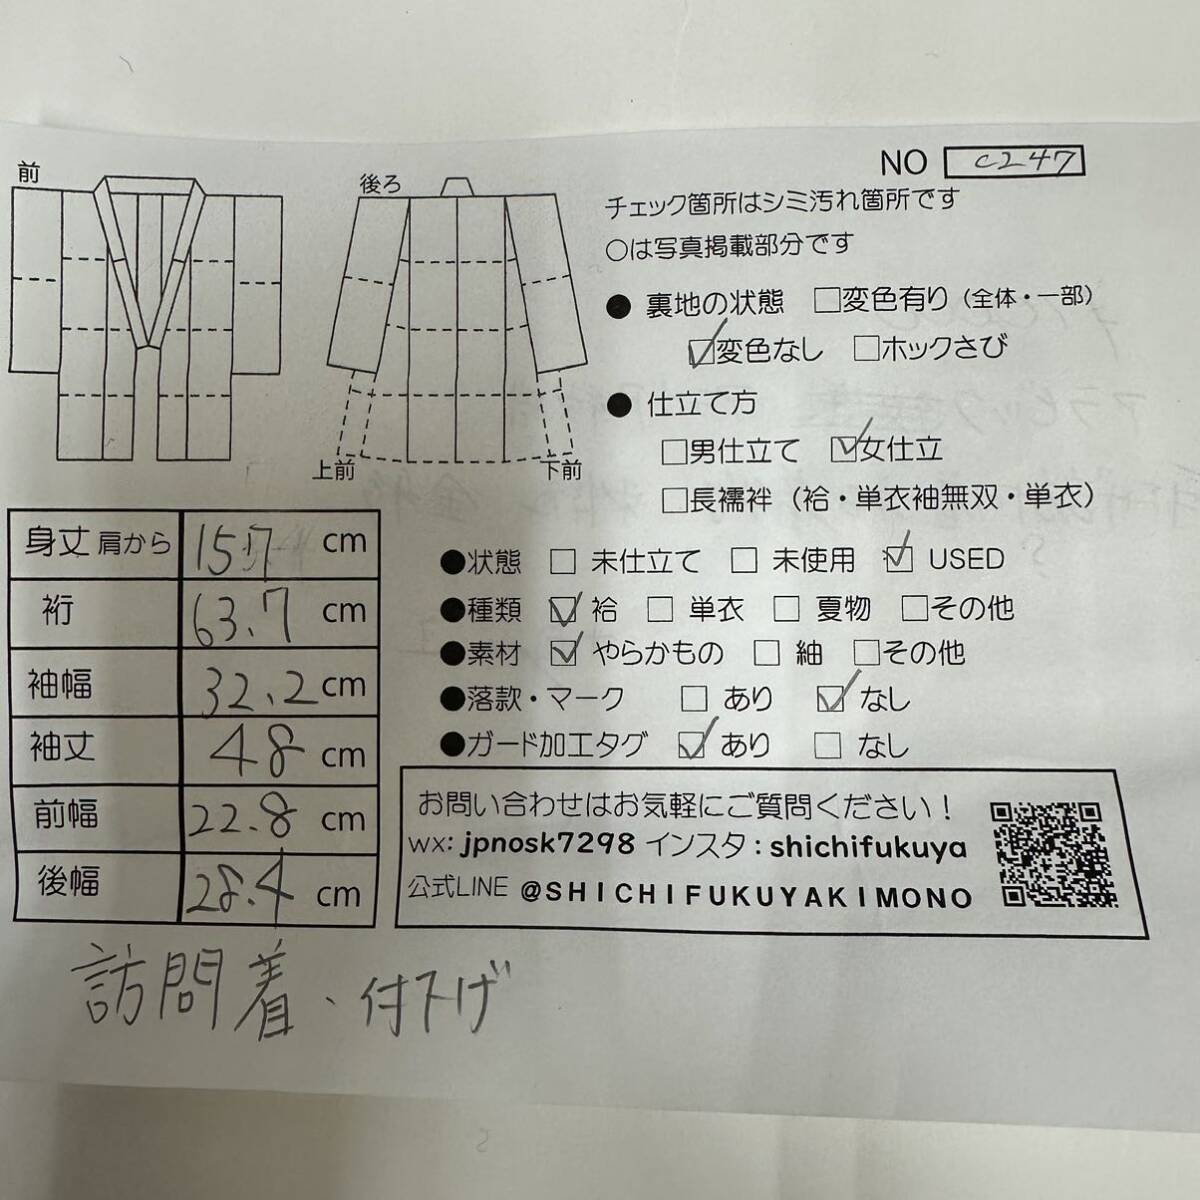 NO c247
前
後ろ
上前
下前
チェック箇所はシミ汚れ箇所です
○は写真掲載部分です
● 裏地の状態 □変色有り（全体・一部）
☑変色なし □ホックさび
● 仕立て方
□男仕立て ☑女仕立
□長襦袢（袷・単衣袖無双・単衣）
●状態 □ 未仕立て □ 未使用 ☑ USED
●種類 ☑ 袷 □ 単衣 □ 夏物 □その他
●素材 ☑ やらかもの □ 紬 □その他
●落款・マーク □ あり ☑ なし
●ガード加工タグ ☑ あり □ なし
身丈 肩から 157 cm
裄 63.7 cm
袖幅 32.2 cm
袖丈 48 cm
前幅 22.8 cm
後幅 28.4 cm
お問い合わせはお気軽にご質問ください！
wx: jpnosk7298 インスタ : shichifukuya
公式LINE @SHICHIFUKUYAKIMONO
訪問着、付下げ